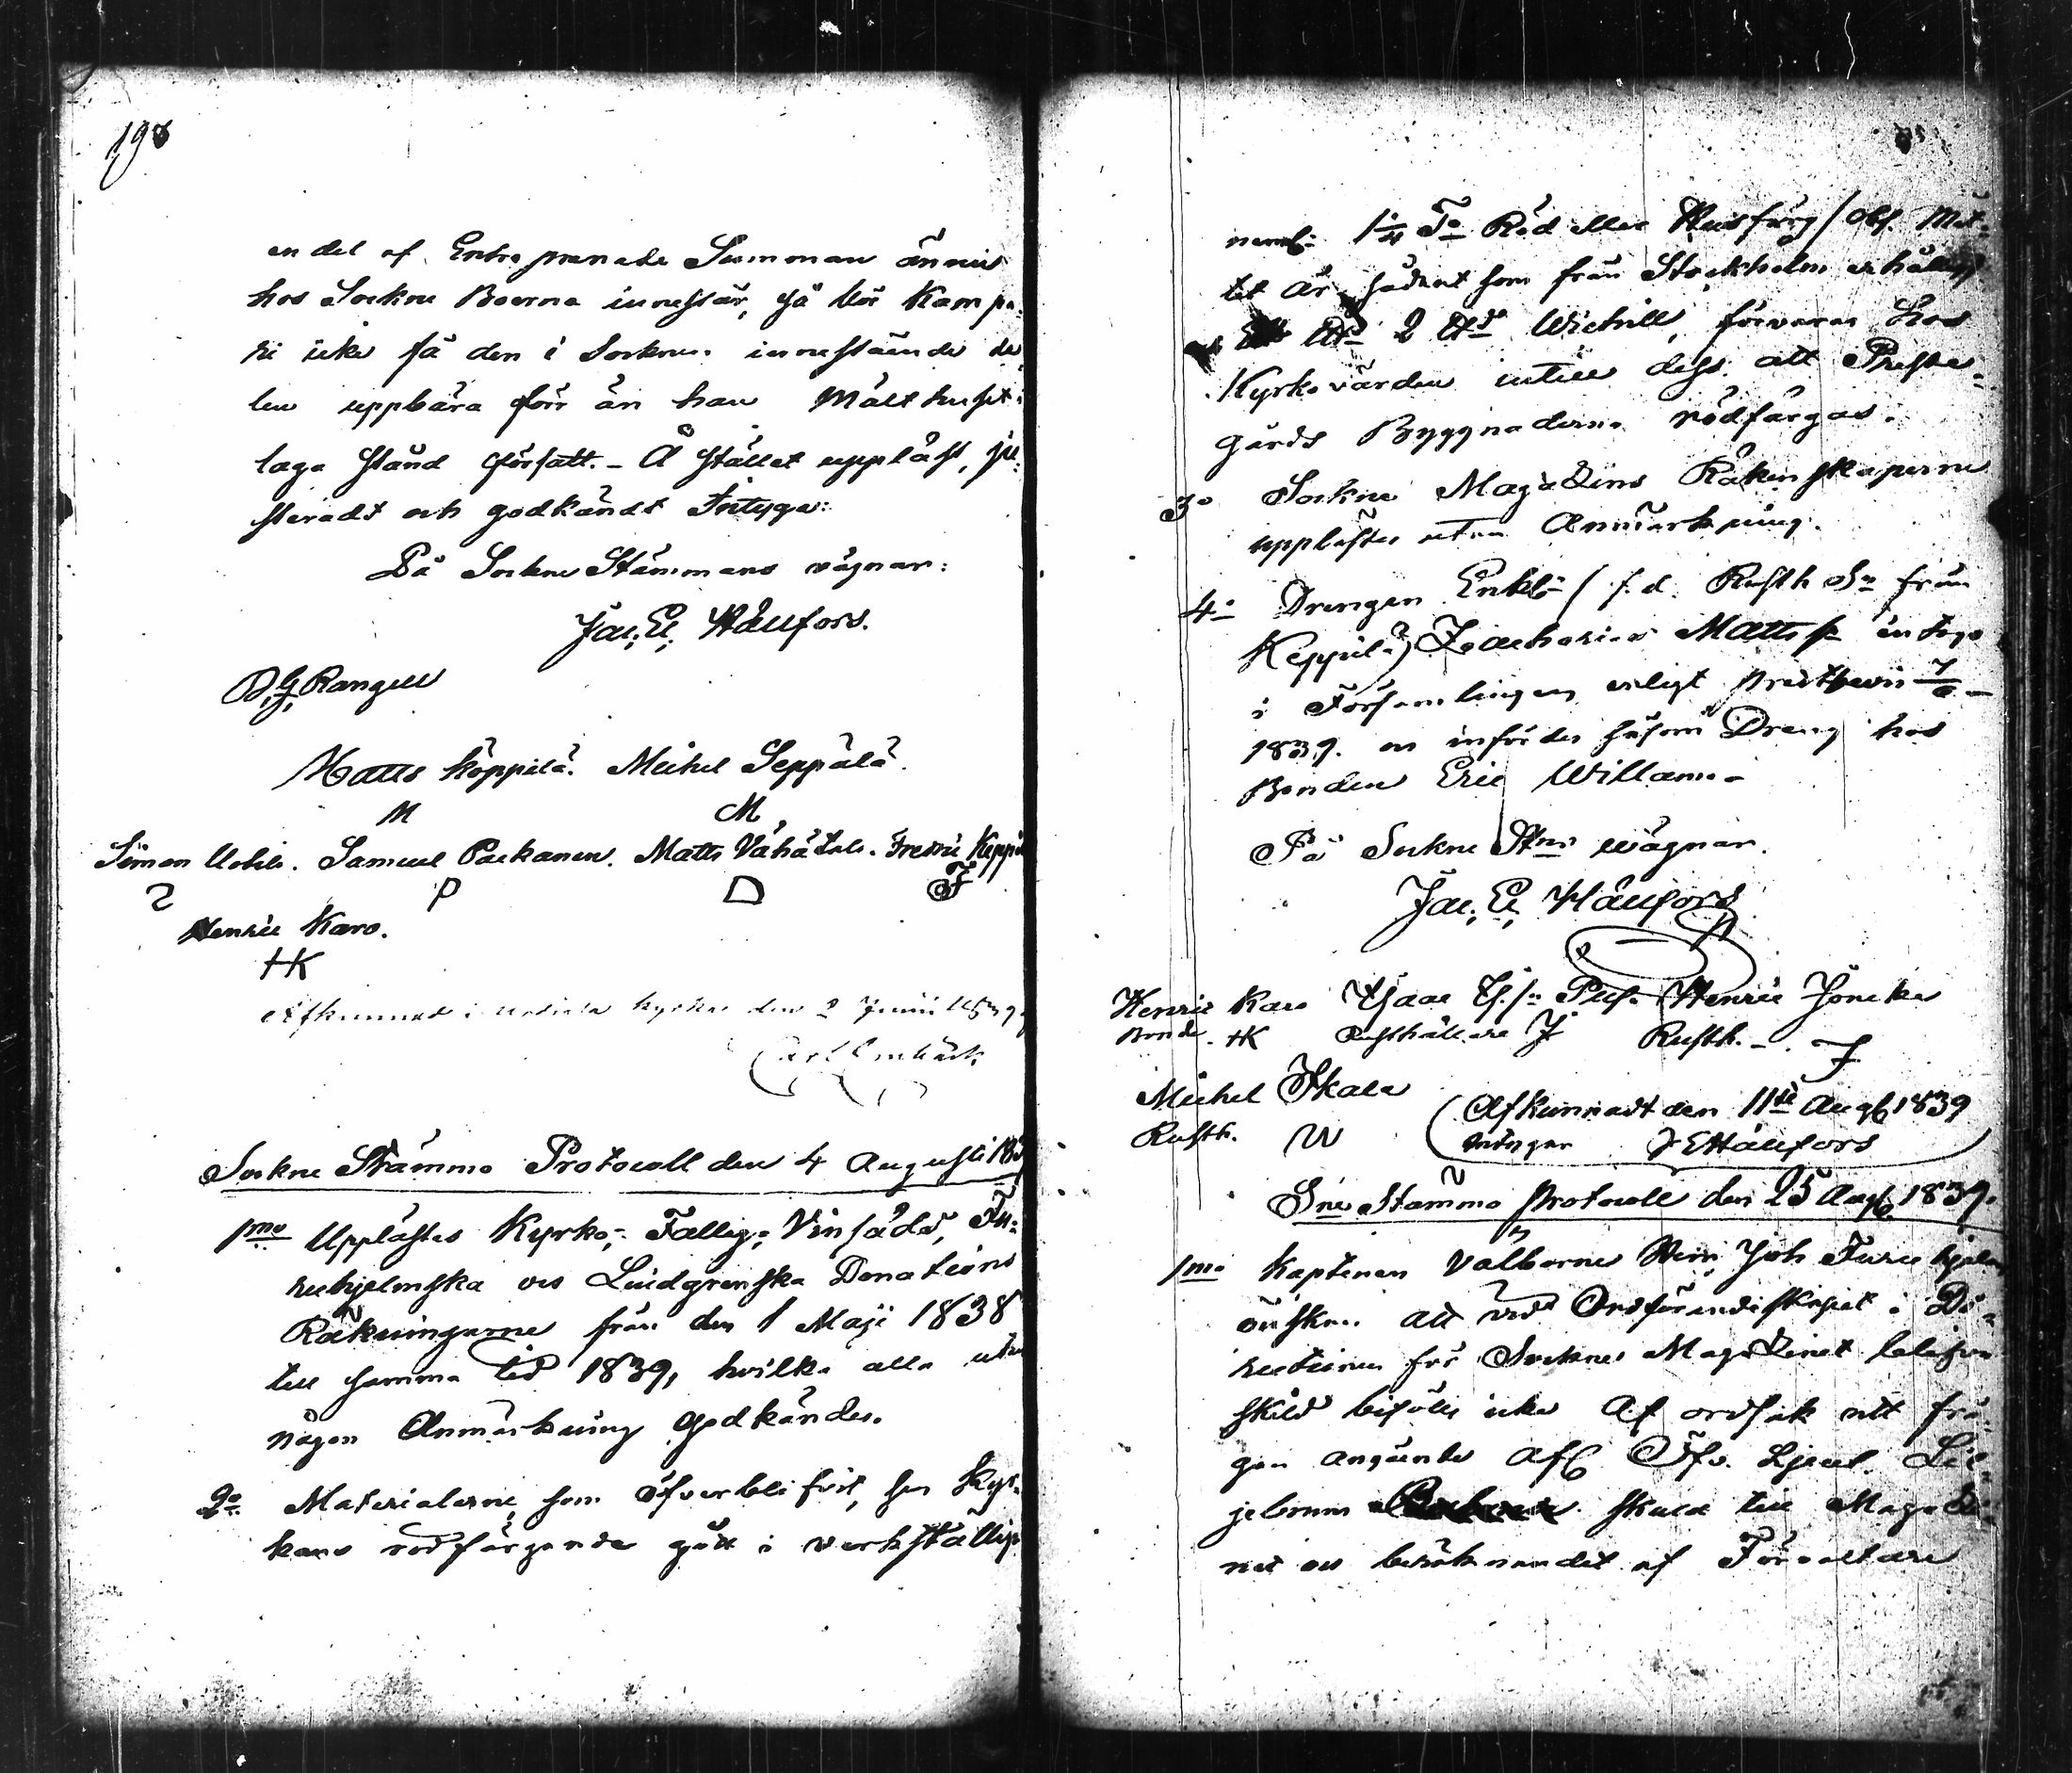 198
en del af Entreprenade Summan ännu
hos Sockne Boerna innestår, så bör Kampa-
ri icke få den i Socknen innestående de-
len uppbära förr än han Målthuset i
laga stånd försatt. - Å stället uppläst, ju-
steradt och godkändt Intyga:
På Sockne Stämmans vägnar:
Jac. E. Hällfors.
D. G. Rangell
Matts Köppilä. Michel Seppälä.
M M
Simon. Samuel Packanen. Matts Vähätalo. Fredric Keppi
P F
Henric Karo.
HK
Afkunnad i kyrka den 2 Junii 1839
Carl
Sockne Stämmo Protocoll den 4 Augusti 183
1mo Upplästes Kyrko-, Fattig-, Vinsäds, Fu-
ruhjelmska och Lindgrenska Donations
Räkningarne från den 1 Maji 1838
till samma tid 1839, hvilka alla utan
någon Anmärkning godkändes.
2o Materialerne, som öfverblifvit, sen Kyr-
kans rödfärgande gått i verkställig-
neml: 1 1/4 To Röd eller Husfärg / obs. Måt-
tet är sådant som från Stockholm erhålles
2 Wictrill, förvaras hos
Kyrkovärden intill dess att Preste-
gårds Byggnaderna rödfärgas.
3o Sockne Magazins Räkenskaperne
upplästes utan Anmärkning.
4o Drengen Enkl. / f. d. Rusth. Sn från
Keppilä) Zacharias Mattss. intogs
i Församlingen enligt Prestbevis 7/6
1839. och infördes såsom Dreng hos
Bonden Eric Willamo
På Sockne Stns wägnar.
Jac. E. Hällfors
Henric Karo Isaac Henric Jöncke
Bonde. HK Rusthållare J Rusth. J
Michel Skala Afkunnadt den 11te Aug. 1839
Rusth. intygar J E Hällfors
Sne Stämmo Protocoll den 25 Aug. 1839.
1mo Kaptenen Välborne Herr Joh Furuhjelm
önskan att vid Ordförandeskapet i Di-
rectionen för Sockne Magazinet blifva
skild bifölls icke Af orsak att frå-
gan angående Afl. Öfv. Löjtn. Lil-
jebrunn skuld till Magazi-
net och beräknandet af Förvaltare